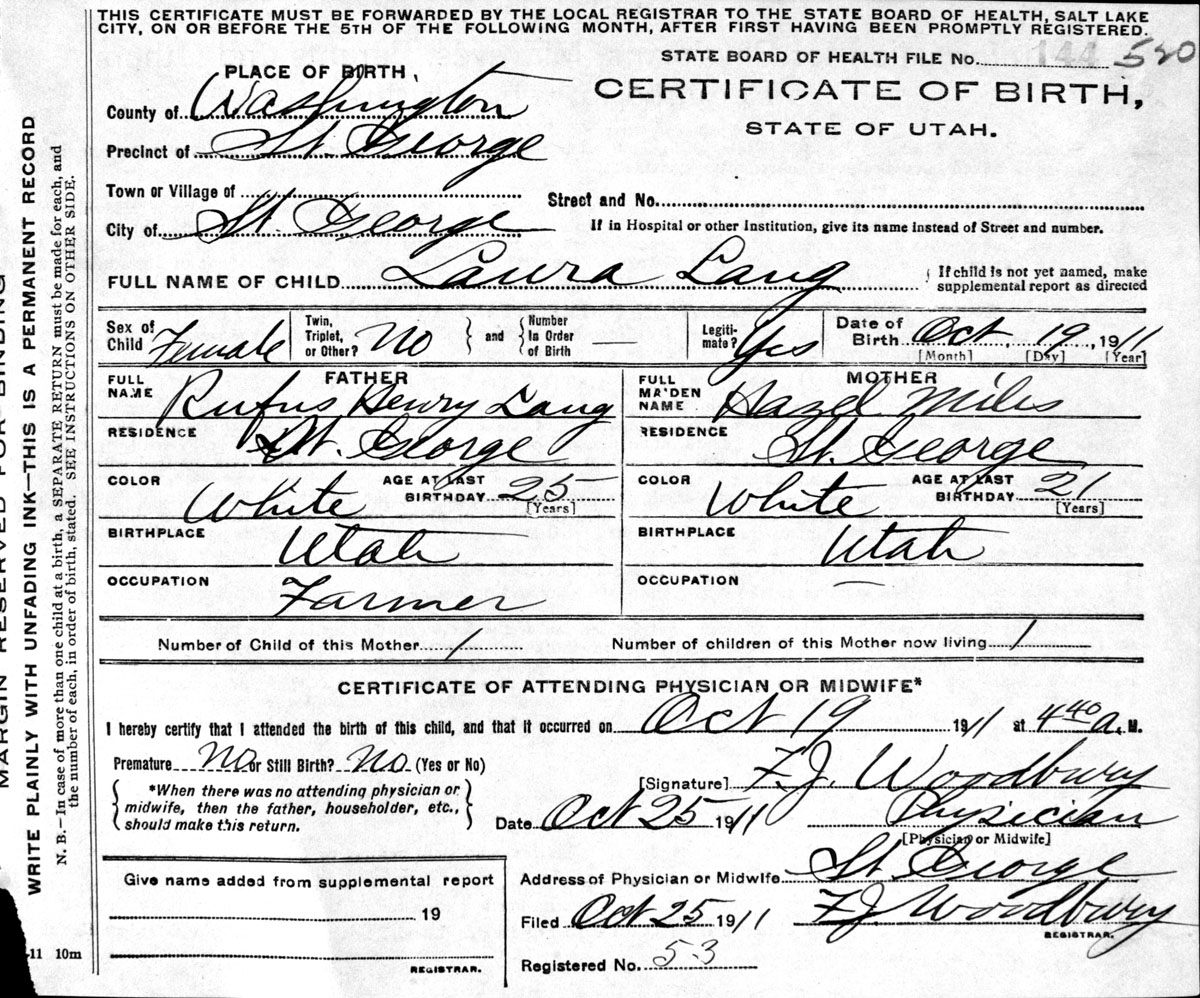 THIS CERTIFICATE MUST BE FORWARDED BY THE LOCAL REGISTRAR TO THE STATE BOARD OF HEALTH, SALT LAKE
CITY, ON OR BEFORE THE 5TH OF THE FOLLOWING MONTH, AFTER FIRST HAVING BEEN PROMPTLY REGISTERED.
STATE BOARD OF HEALTH FILE No. 144 520
PLACE OF BIRTH,
CERTIFICATE OF BIRTH,
STATE OF UTAH.
County of Washington
Precinct of St. George
Town or Village of
Street and No.
City of St. George
If in Hospital or other Institution, give its name instead of Street and number.
FULL NAME OF CHILD Laura Lang
If child is not yet named, make
supplemental report as directed
Sex of Child Female
Twin, Triplet, or Other? No
and Number In Order of Birth —
Legiti-mate? Yes
Date of Birth Oct. 19, 1911
[Month] [Day] [Year]
FATHER
FULL NAME Rufus Henry Lang
RESIDENCE St. George
COLOR White AGE AT LAST BIRTHDAY 25
[Years]
BIRTHPLACE Utah
OCCUPATION Farmer
MOTHER
FULL MAIDEN NAME Hazel Miles
RESIDENCE St. George
COLOR White AGE AT LAST BIRTHDAY 21
[Years]
BIRTHPLACE Utah
OCCUPATION —
Number of Child of this Mother 1 Number of children of this Mother now living 1
CERTIFICATE OF ATTENDING PHYSICIAN OR MIDWIFE*
I hereby certify that I attended the birth of this child, and that it occurred on Oct 19 1911 at 4 40 a. M.
Premature No or Still Birth? No (Yes or No)
[Signature] F. J. Woodbury
*When there was no attending physician or
midwife, then the father, householder, etc.,
should make this return.
Date Oct 25 1911 Physician
[Physician or Midwife]
Give name added from supplemental report
19
REGISTRAR.
Address of Physician or Midwife St. George
Filed Oct 25 1911 F. J. Woodbury
REGISTRAR.
Registered No. 53
11 10m
MARGIN RESERVED FOR BINDING
WRITE PLAINLY WITH UNFADING INK—THIS IS A PERMANENT RECORD
N. B.—In case of more than one child at a birth, a SEPARATE RETURN must be made for each, and
the number of each, in order of birth, stated. SEE INSTRUCTIONS ON OTHER SIDE.